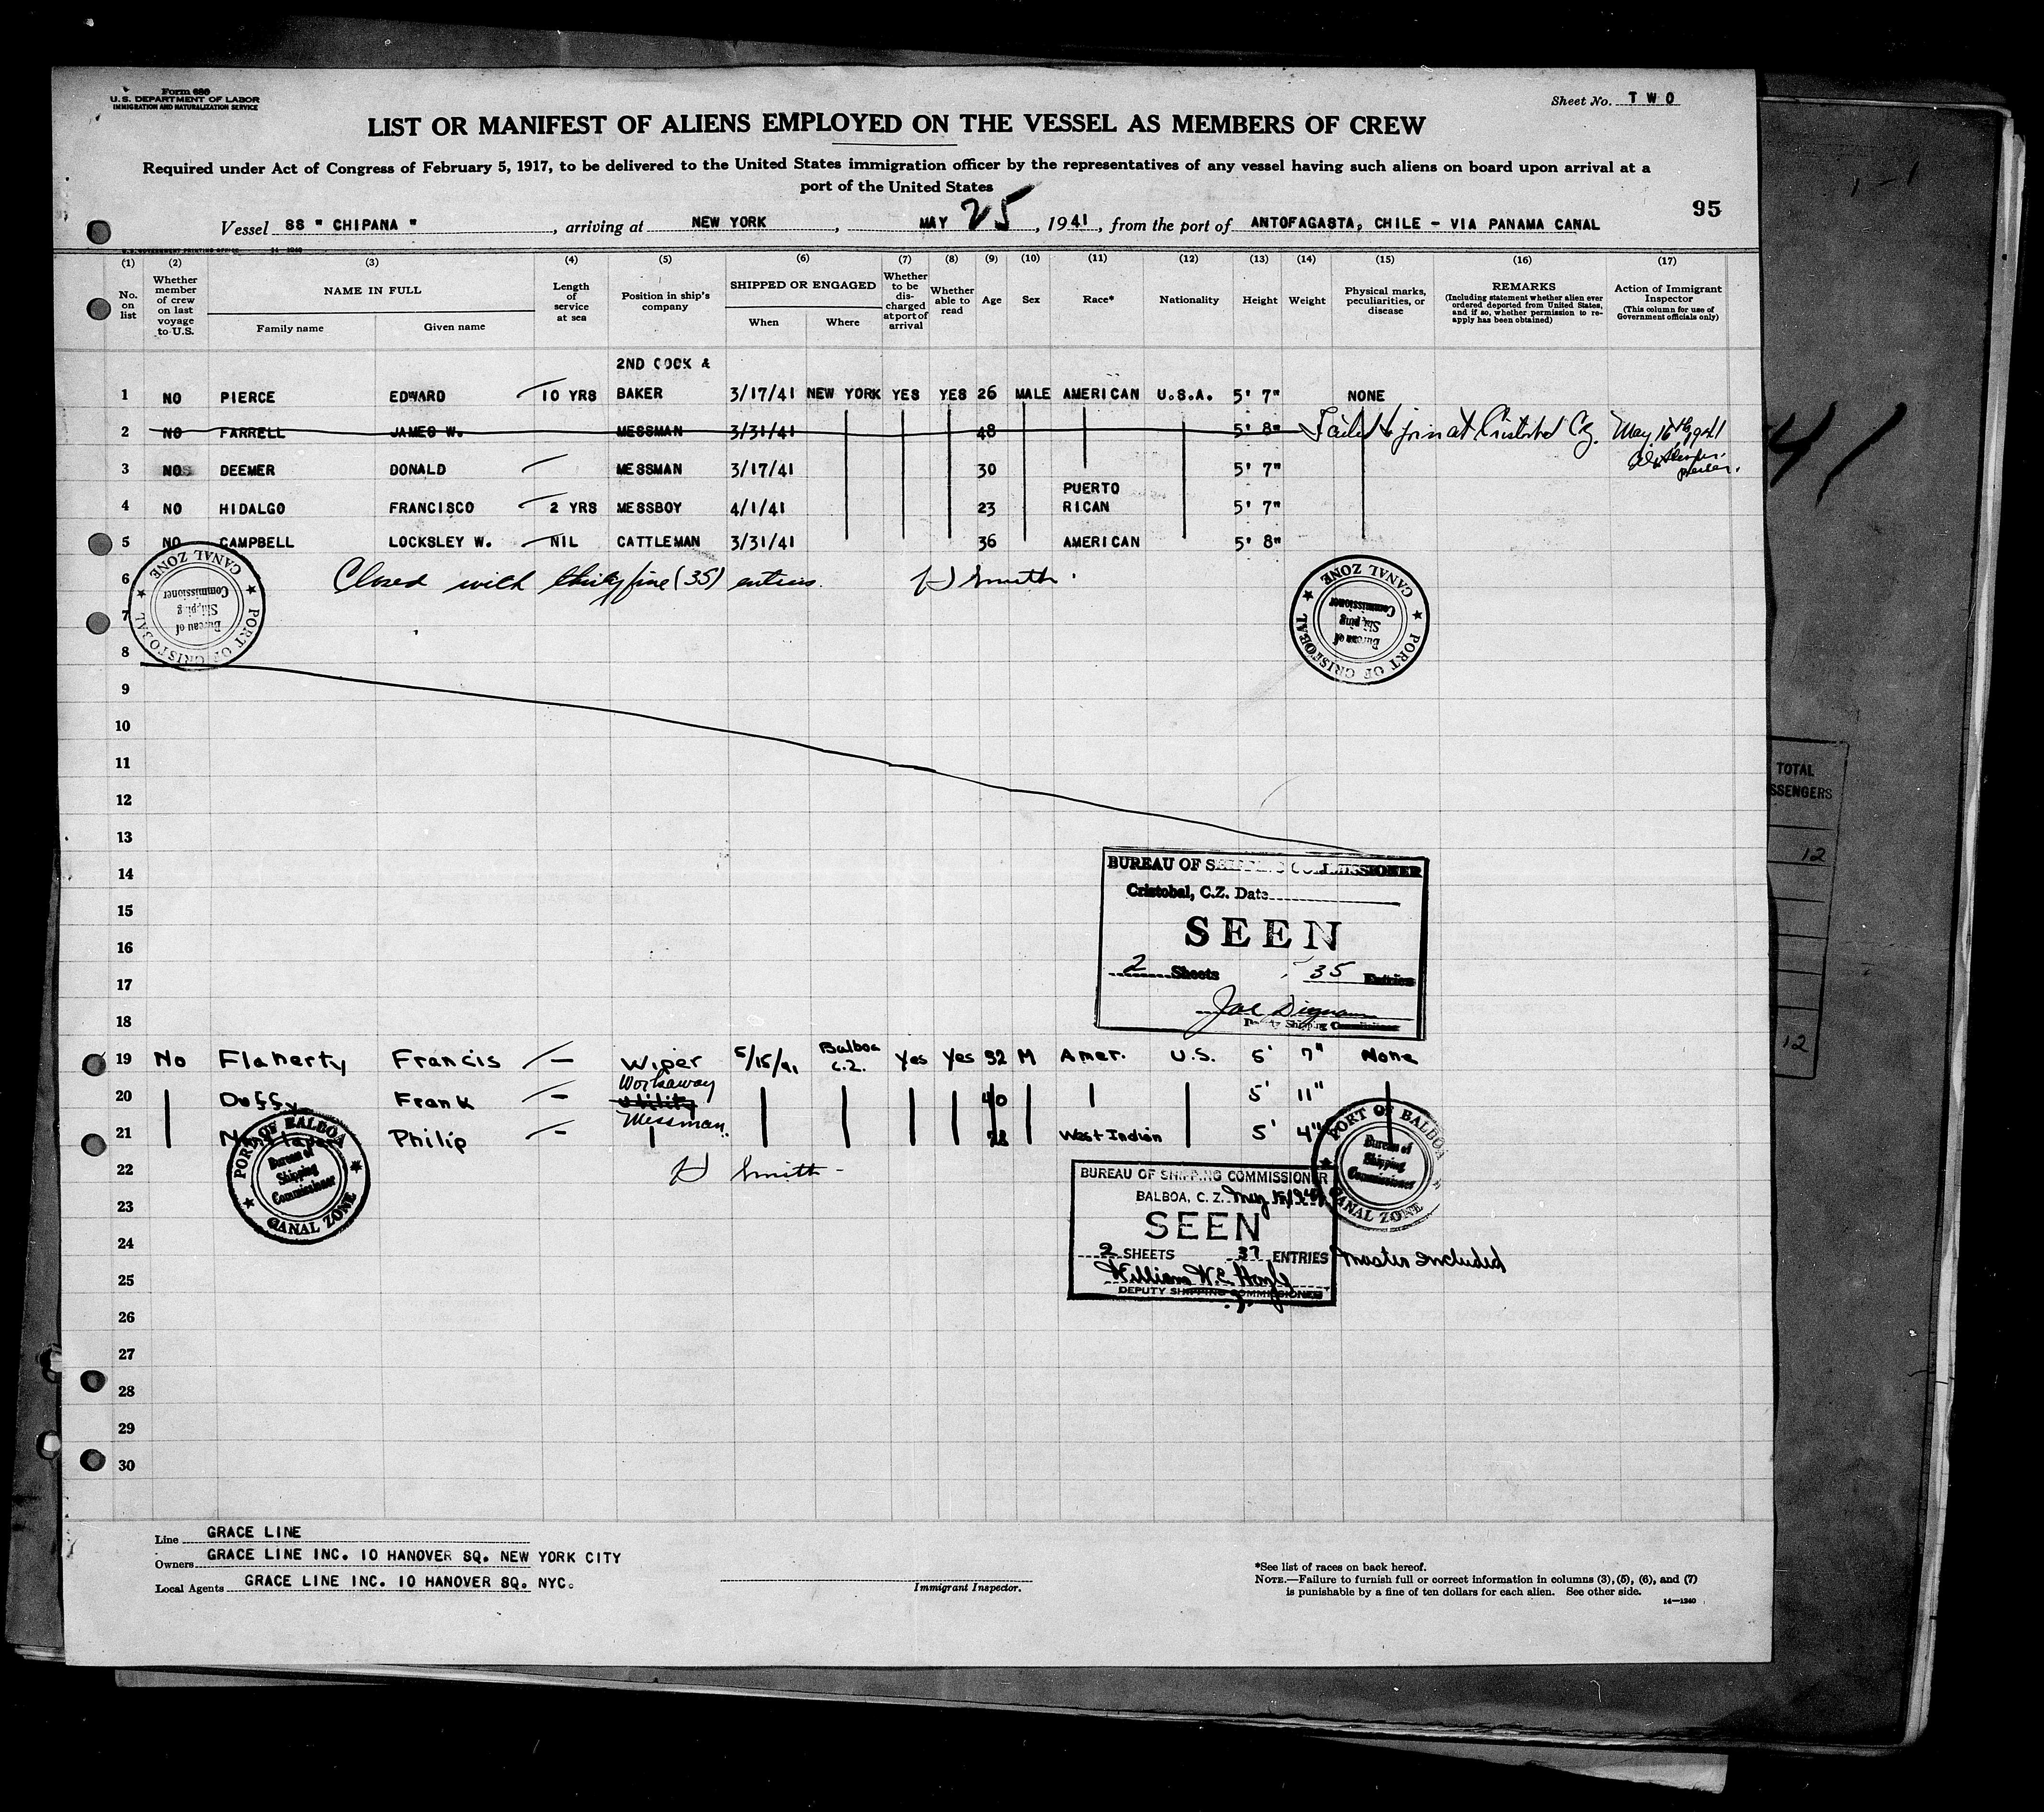 Form 680
U.S. DEPARTMENT OF LABOR
IMMIGRATION AND NATURALIZATION SERVICE
Sheet No. TWO
LIST OR MANIFEST OF ALIENS EMPLOYED ON THE VESSEL AS MEMBERS OF CREW
Required under Act of Congress of February 5, 1917, to be delivered to the United States immigration officer by the representatives of any vessel having such aliens on board upon arrival at a
port of the United States
95
Vessel SS " CHIPANA ", arriving at NEW YORK, MAY 25, 1941, from the port of ANTOFAGASTA, CHILE - VIA PANAMA CANAL
(1) (2) (3) (4) (5) (6) (7) (8) (9) (10) (11) (12) (13) (14) (15) (16) (17)
No. on list
Whether member of crew on last voyage to U.S.
NAME IN FULL
Family name
Given name
Length of service at sea
Position in ship's company
SHIPPED OR ENGAGED
When
Where
Whether to be discharged at port of arrival
Whether able to read
Age
Sex
Race*
Nationality
Height
Weight
Physical marks, peculiarities, or disease
REMARKS
(Including statement whether alien ever ordered deported from United States, and if so, whether permission to reapply has been obtained)
Action of Immigrant Inspector
(This column for use of Government officials only)
2ND COOK &
1 NO PIERCE EDWARD 10 YRS BAKER 3/17/41 NEW YORK YES YES 26 MALE AMERICAN U.S.A. 5' 7" NONE
2 NO FARRELL JAMES W. MESSMAN 3/31/41 48 5' 8" Failed to join at Cristobal Cz. May 16th, 1941
3 NO DEEMER DONALD MESSMAN 3/17/41 30 5' 7"
PUERTO
4 NO HIDALGO FRANCISCO 2 YRS MESSBOY 4/1/41 23 RICAN 5' 7"
5 NO CAMPBELL LOCKSLEY W. NIL CATTLEMAN 3/31/41 36 AMERICAN 5' 8"
6 Closed with thirty five (35) entries. H Smith
PORT OF CRISTOBAL CANAL ZONE
Bureau of Shipping Commissioner
PORT OF CRISTOBAL CANAL ZONE
Bureau of Shipping Commissioner
7
8
9
10
11
12
13
14
15
16
17
18
BUREAU OF SHIPPING COMMISSIONER
Cristobal, C.Z. Date
SEEN
2 Sheets 35 Entries
Deputy Shipping Commissioner
19 No Flaherty Francis - Wiper 5/15/41 Balboa C.Z. Yes Yes 32 M Amer. U.S. 5' 7" None
Workaway
20 Duffy Frank - Utility 40 5' 11"
Messman
21 Philip - West Indian 5' 4"
22 H Smith
PORT OF BALBOA CANAL ZONE
Bureau of Shipping Commissioner
PORT OF BALBOA CANAL ZONE
Bureau of Shipping Commissioner
23
24
25
26
27
28
29
30
BUREAU OF SHIPPING COMMISSIONER
BALBOA, C. Z. May 15, 1941
SEEN
2 SHEETS 37 ENTRIES Master Included
DEPUTY SHIPPING COMMISSIONER
Line GRACE LINE
Owners GRACE LINE INC. 10 HANOVER SQ. NEW YORK CITY
Local Agents GRACE LINE INC. 10 HANOVER SQ. NYC.
Immigrant Inspector.
*See list of races on back hereof.
NOTE.—Failure to furnish full or correct information in columns (3), (5), (6), and (7)
is punishable by a fine of ten dollars for each alien. See other side.
14—1240
41
TOTAL
12
12